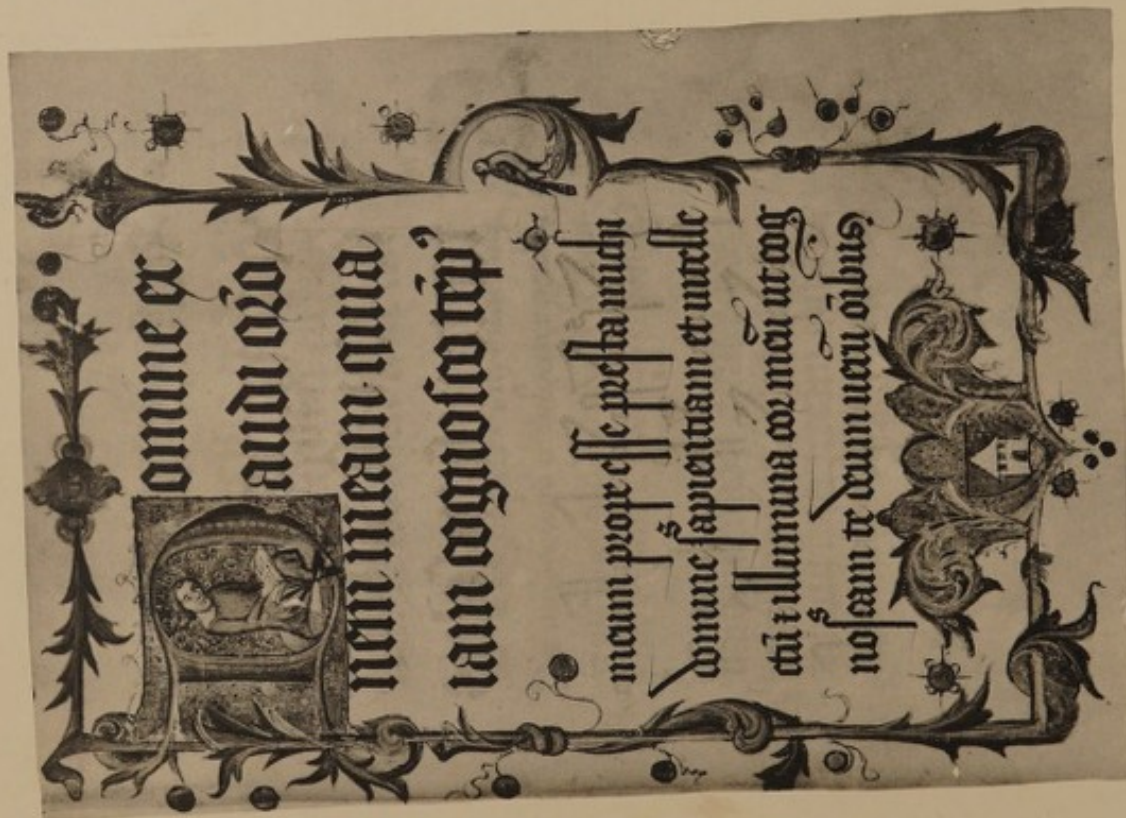 Domine ex
audi or̄o
nem meam quia
iam cognoſco tēp'
meum prope eſſe preſta michi
domine ſapientiam et intelle
ctū ⁊ illumina cor meū ut cog
noſcam te deum uerū oībus